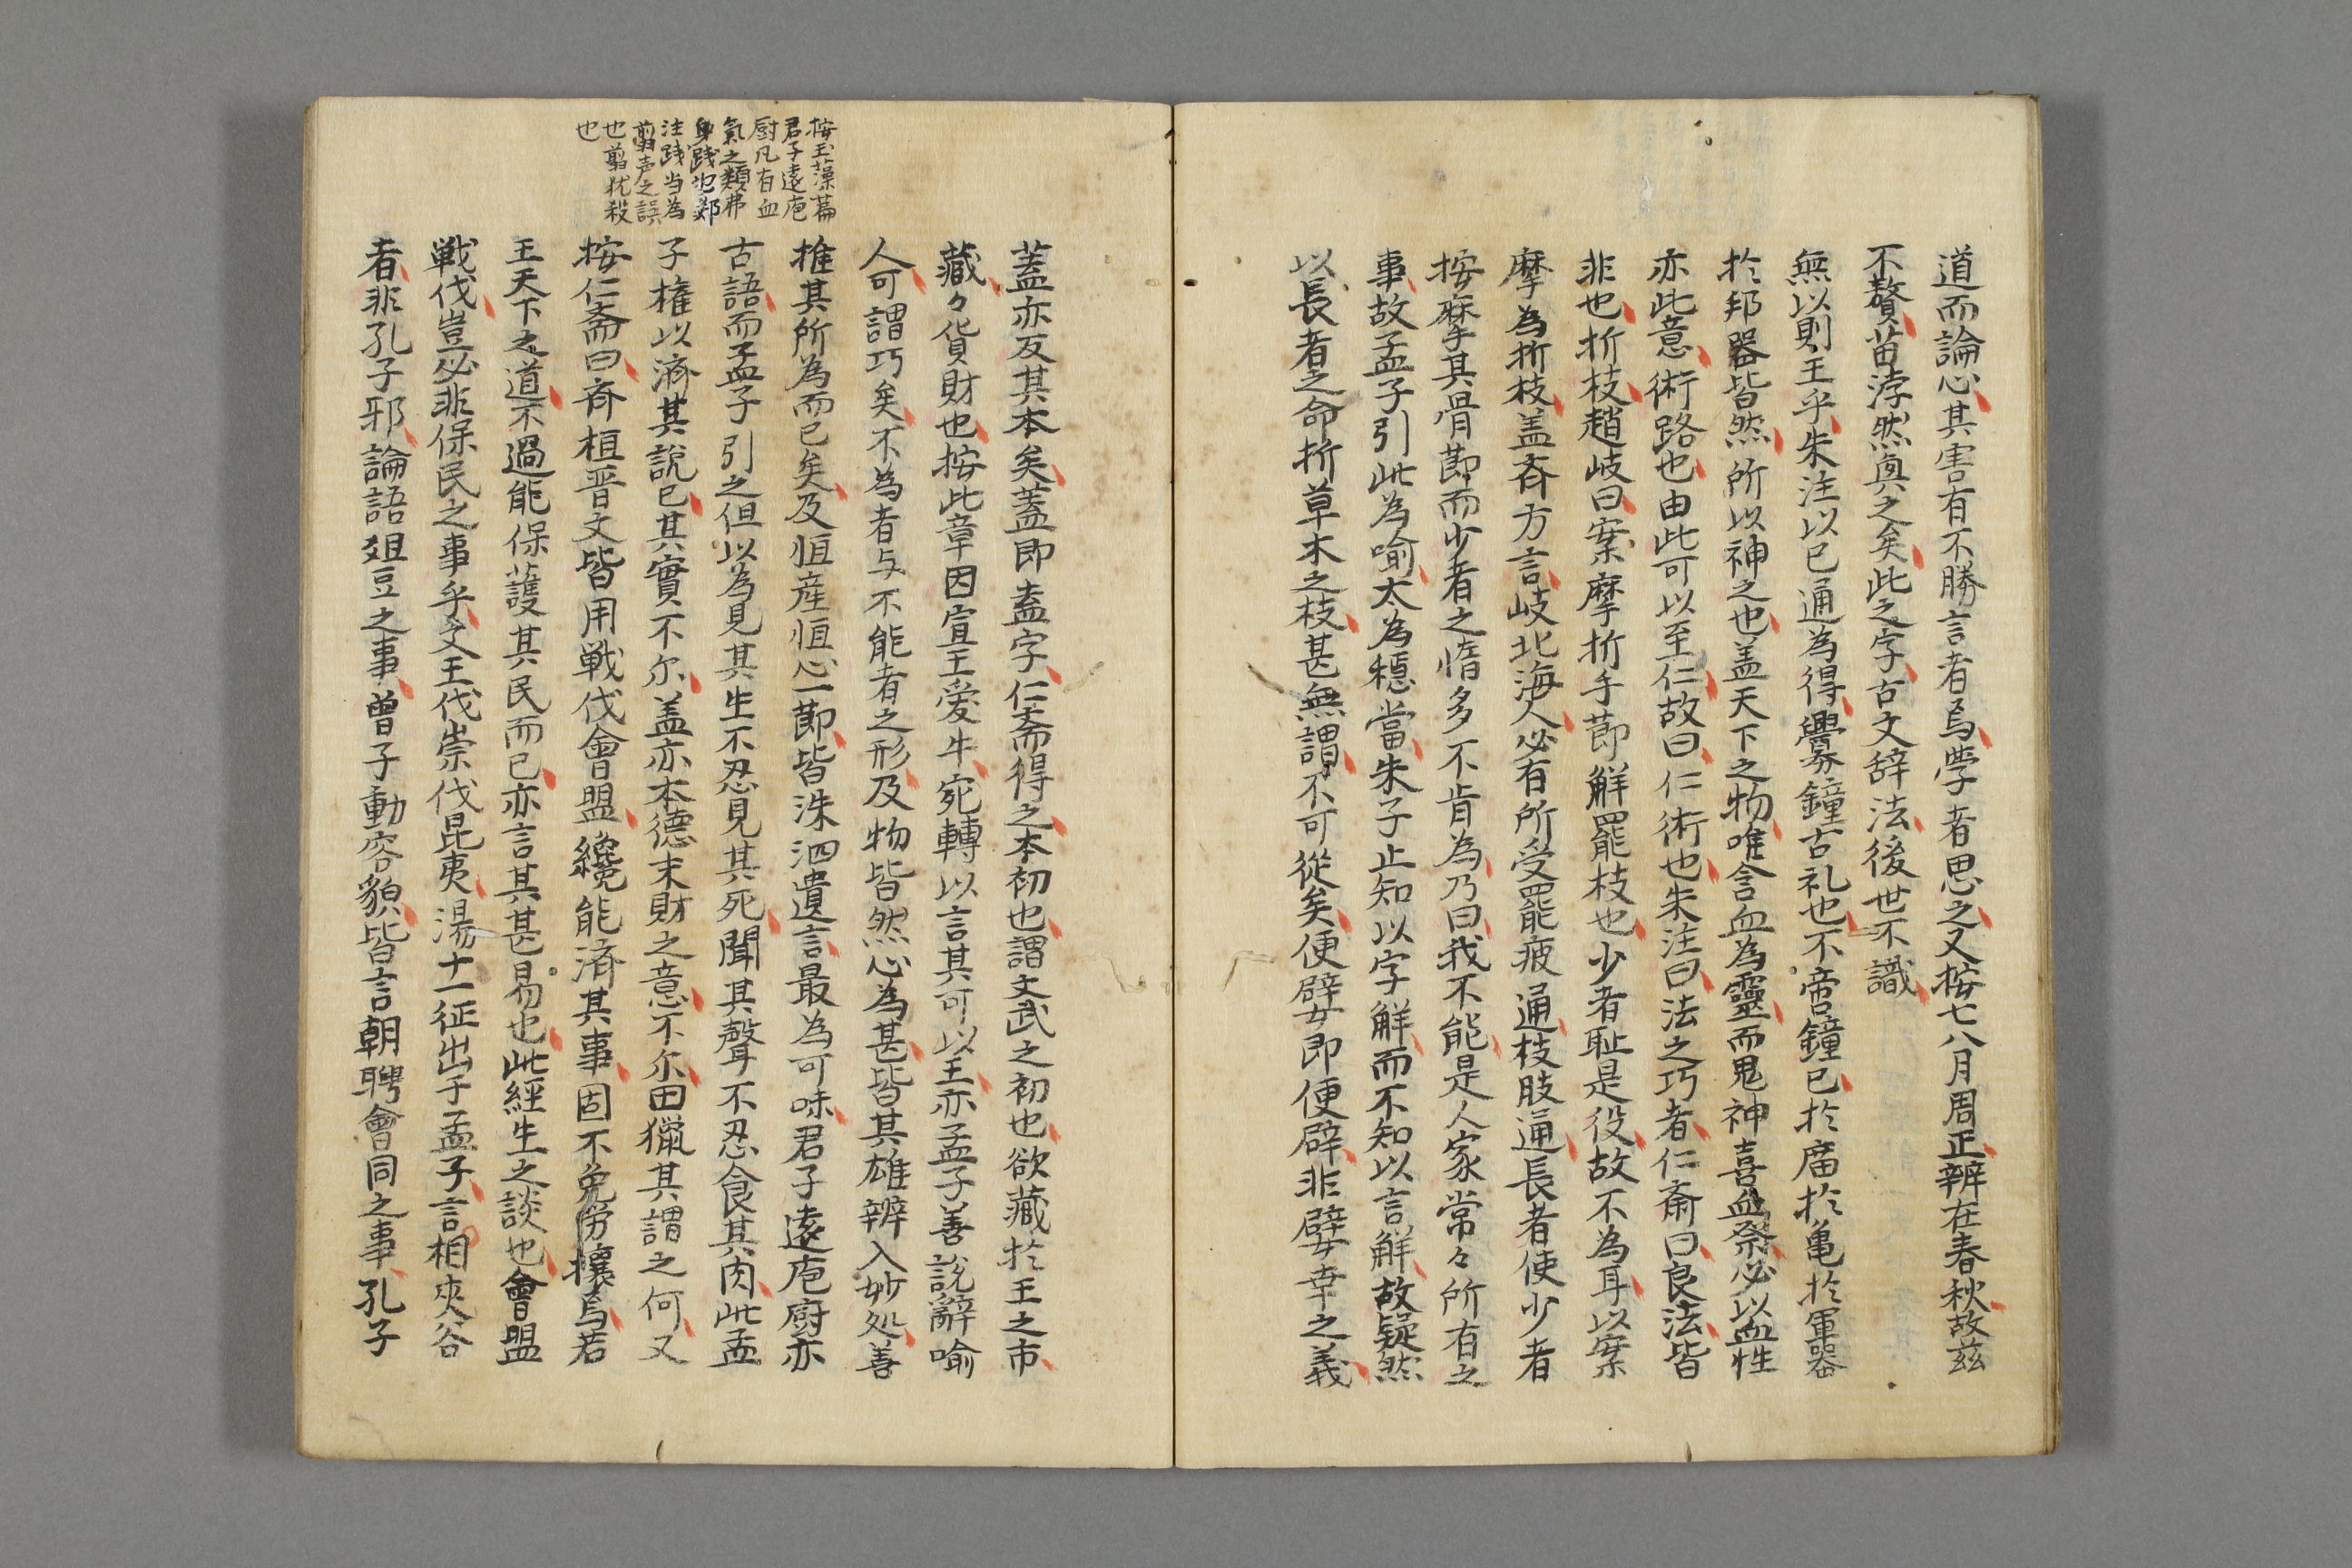 道而論心其害有不勝言者焉學者思之又按七八月周正辨在春秋故茲
不贅苗浡然與之矣此之字古文辞法後世不識
無以則王乎朱注以已通為得釁鐘古礼也不啻鐘已於廟於亀於軍器
於邦器皆然所以神之也盖天下之物唯含血為靈而鬼神喜血祭必以血性
亦此意術路也由此可以至仁故曰仁術也朱注曰法之巧者仁斎曰良法皆
非也折枝趙岐曰案摩折手節解罷枝也少者耻是役故不為耳以案
摩為折枝盖斉方言岐北海人必有所受罷疲通枝肢通長者使少者
按摩其骨節而少者之惰多不肯為乃曰我不能是人家常々所有之
事故孟子引此為喻太為穏當朱子止知以字解而不知以言解故疑然
以長者之命折草木之枝甚無謂不可従矣便嬖即便辟非嬖幸之義
蓋亦反其本矣蓋即盍字仁斎得之本初也謂文武之初也欲藏於王之市
藏々貨財也按此章因宣王愛牛宛轉以言其可以王亦孟子善説辭喻
人可謂巧矣不為者与不能者之形及物皆然心為甚皆其雄辨入妙処善
推其所為而已矣及恒産恒心一節皆洙泗遺言最為可味君子遠庖厨亦
古語而孟子引之但以為見其生不忍見其死聞其聲不忍食其肉此孟
子権以済其説已其實不尔盖亦本德末財之意不尔田獵其謂之何又
按仁斎曰斉桓晋文皆用戦伐會盟纔能済其事固不免労攘焉若
王天下之道不過能保護其民而已亦言其甚易也此經生之談也會盟
戦伐豈必非保民之事乎文王伐崇伐昆夷湯十一征出于孟子言相夾谷
者非孔子邪論語俎豆之事曽子動容貌皆言朝聘會同之事孔子
按玉藻篇
君子遠庖
厨凡有血
氣之類弗
身践也鄭
注践当為
翦声之誤
也翦犹殺
也